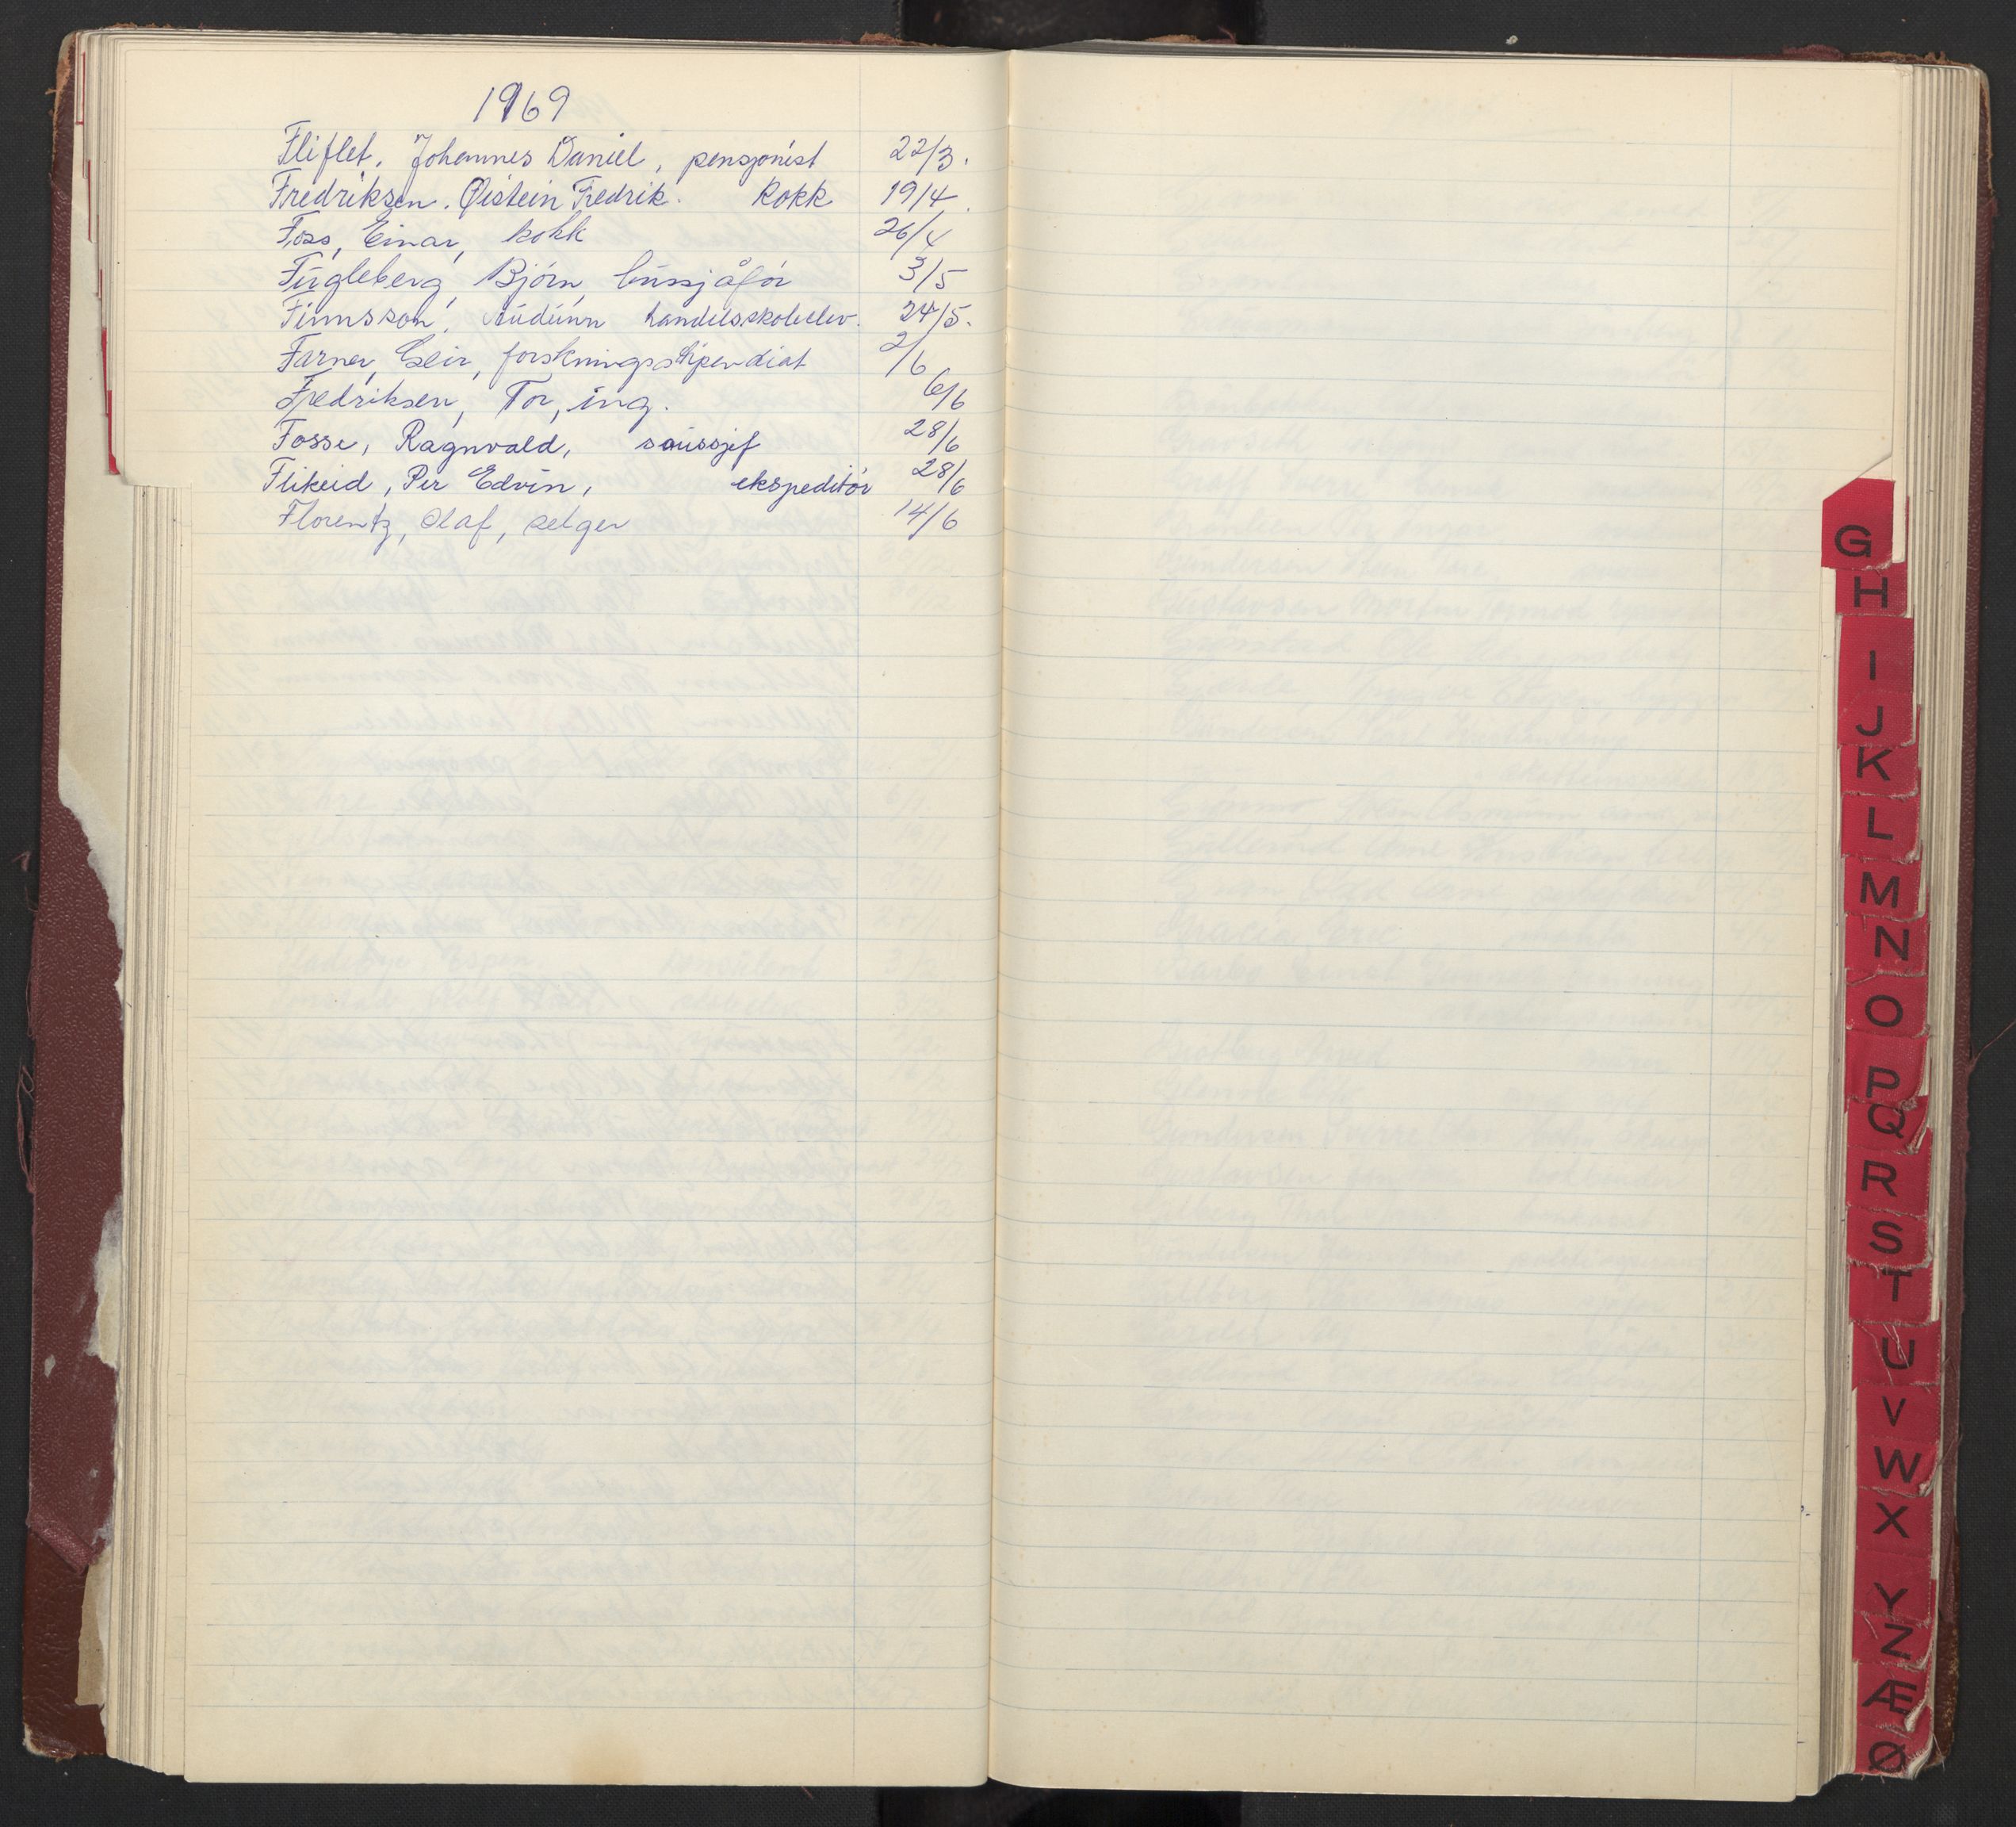 1969
Fliflet, Johannes Daniel, pensjonist 22/3.
Fredriksen. Øistein Fredrik. Kokk 19/4.
Foss, Einar, kokk 26/4
Fugleberg, Bjørn, bussjåfør 3/5
Finnsson, Audunn handelsskoleelev. 24/5.
Farner, Geir, forskningsstipendiat 2/6
Fredriksen, Tor, ing. 6/6
Fosse, Ragnvald, saussjef 28/6
Flikeid, Per Edvin, ekspeditør 28/6
Florentz, Olaf, selger 14/6
G
H
I
J
K
L
M
N
O
P
Q
R
S
T
U
V
W
X
Y
Z
Æ
Ø